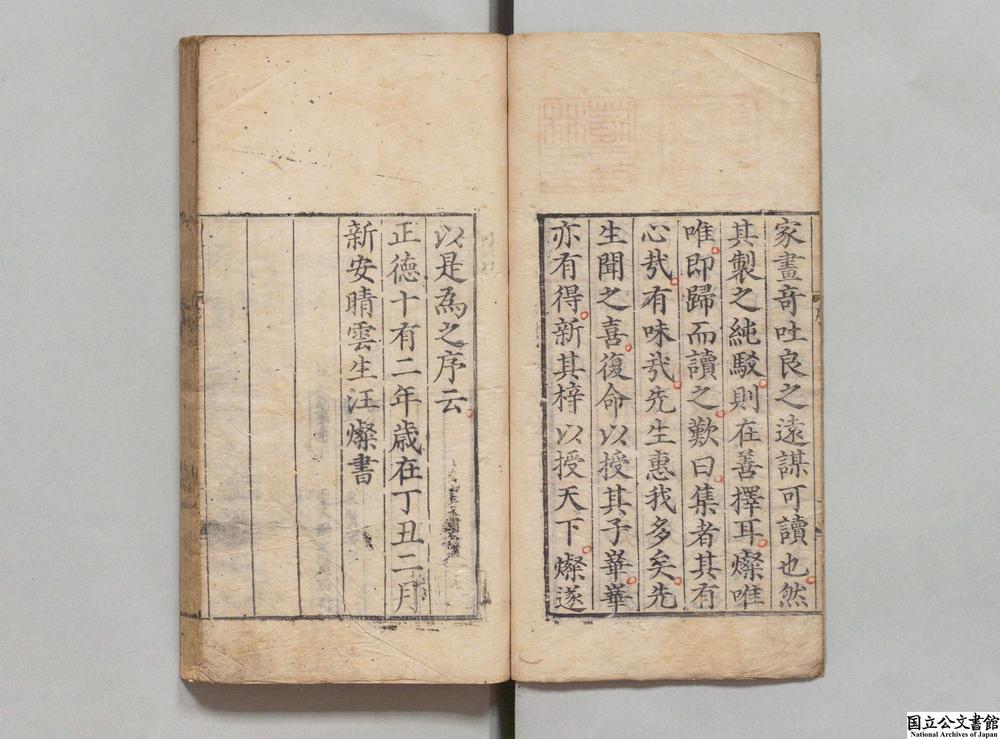 家畫竒吐良之遠謀可讀也然
其製之純駁則在善擇耳燦唯
唯即歸而讀之歎曰集者其有
心㢤有味㢤先生惠我多矣先
生聞之喜復命以授其子華華
亦有得新其梓以授天下燦遂
以是為之序云
正德十有二年歲在丁丑二月
新安晴雲生汪燦書
国立公文書館
National Archives of Japan